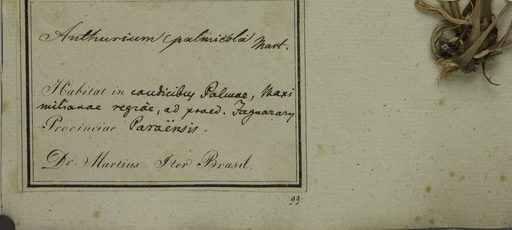 Anthurium palmicola Mart.
Habitat in caudicibus Palmae, Maxi
milianae regiae, ad praed. Jaguarary
Provinciae Paraënsis.
Dr. Martius Iter Brasil.
99